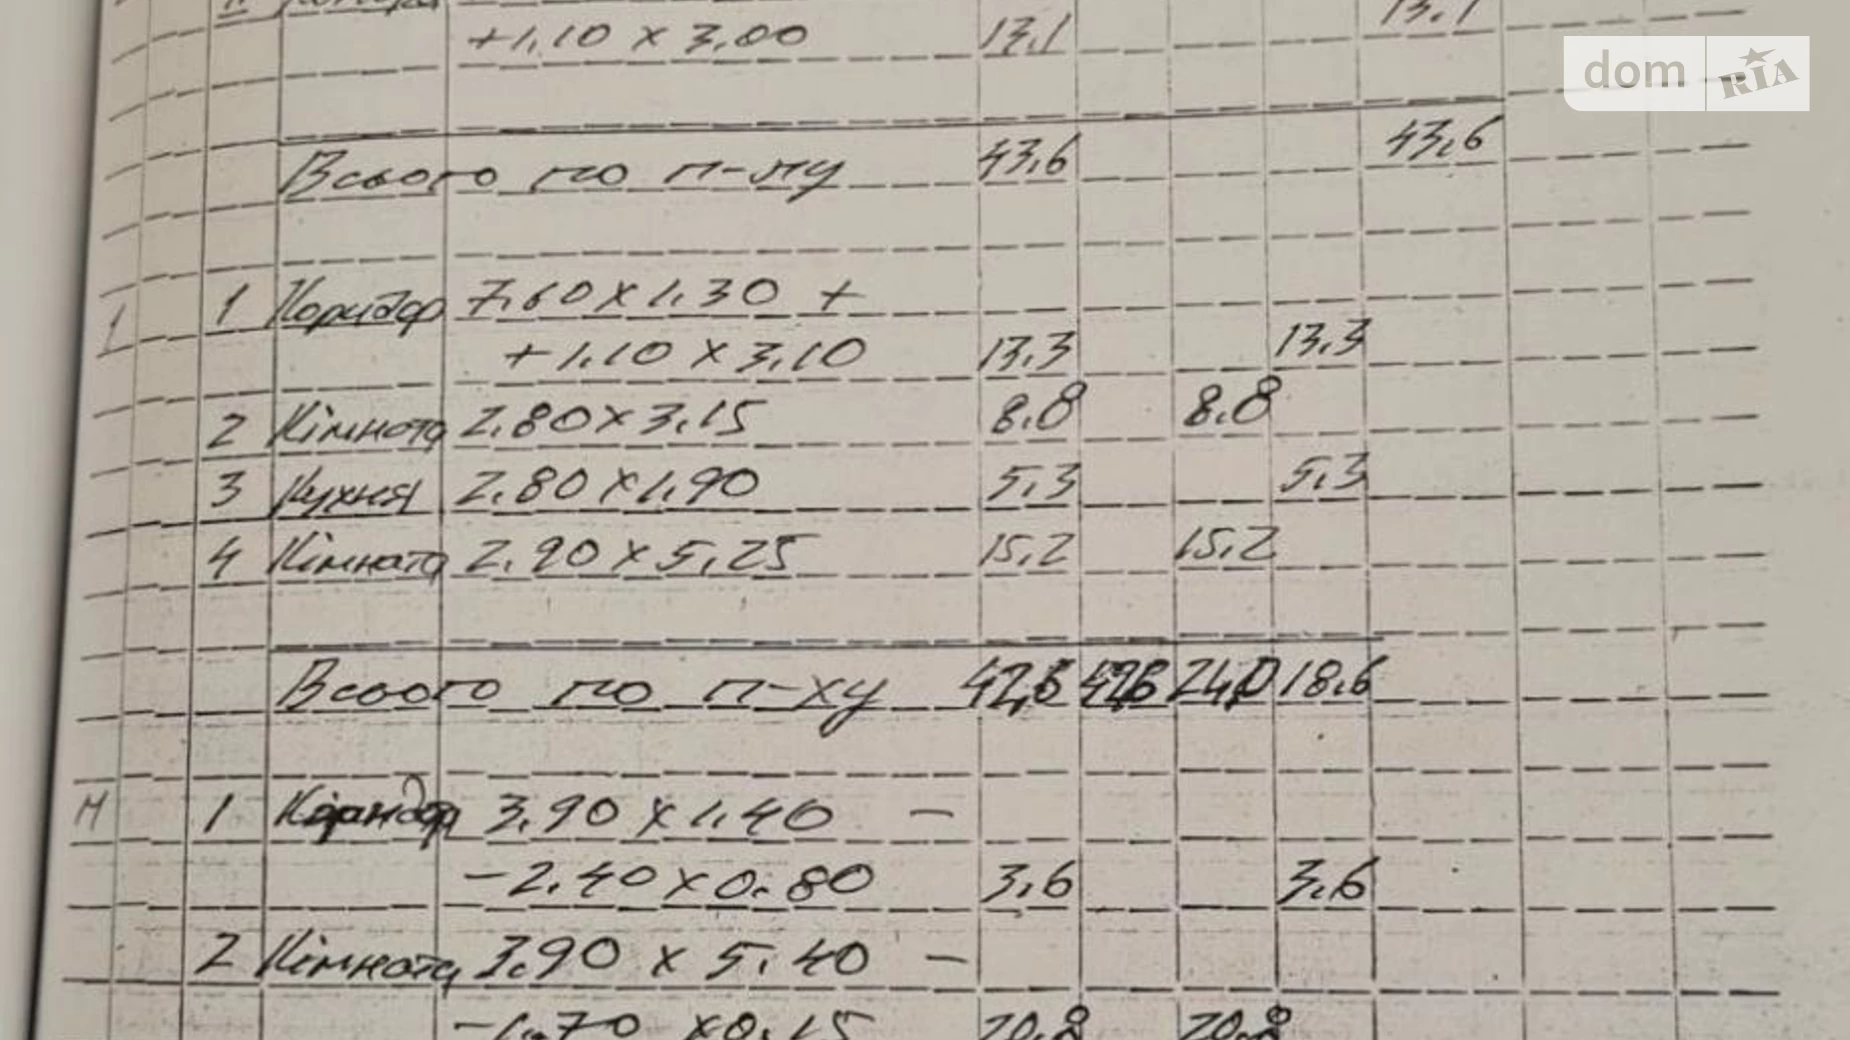 +1,10 x 3,00 13,1 13,1
dom RIA
Всього по п-пу 43,6 43,6
1 Коридор 7,60 x 1,30 +
+1,10 x 3,10 13,3 13,3
2 Кімната 2,80 x 3,15 8,8 8,8
3 Кухня 2,80 x 1,90 5,3 5,3
4 Кімната 2,90 x 5,25 15,2 15,2
Всього по п-ху 42,6 42,6 24,0 18,6
1 Коридор 3,90 x 1,40 -
-2,40 x 0,80 3,6 3,6
2 Кімната 3,90 x 5,40 -
-1,70 x 0,15 20,8 20,8